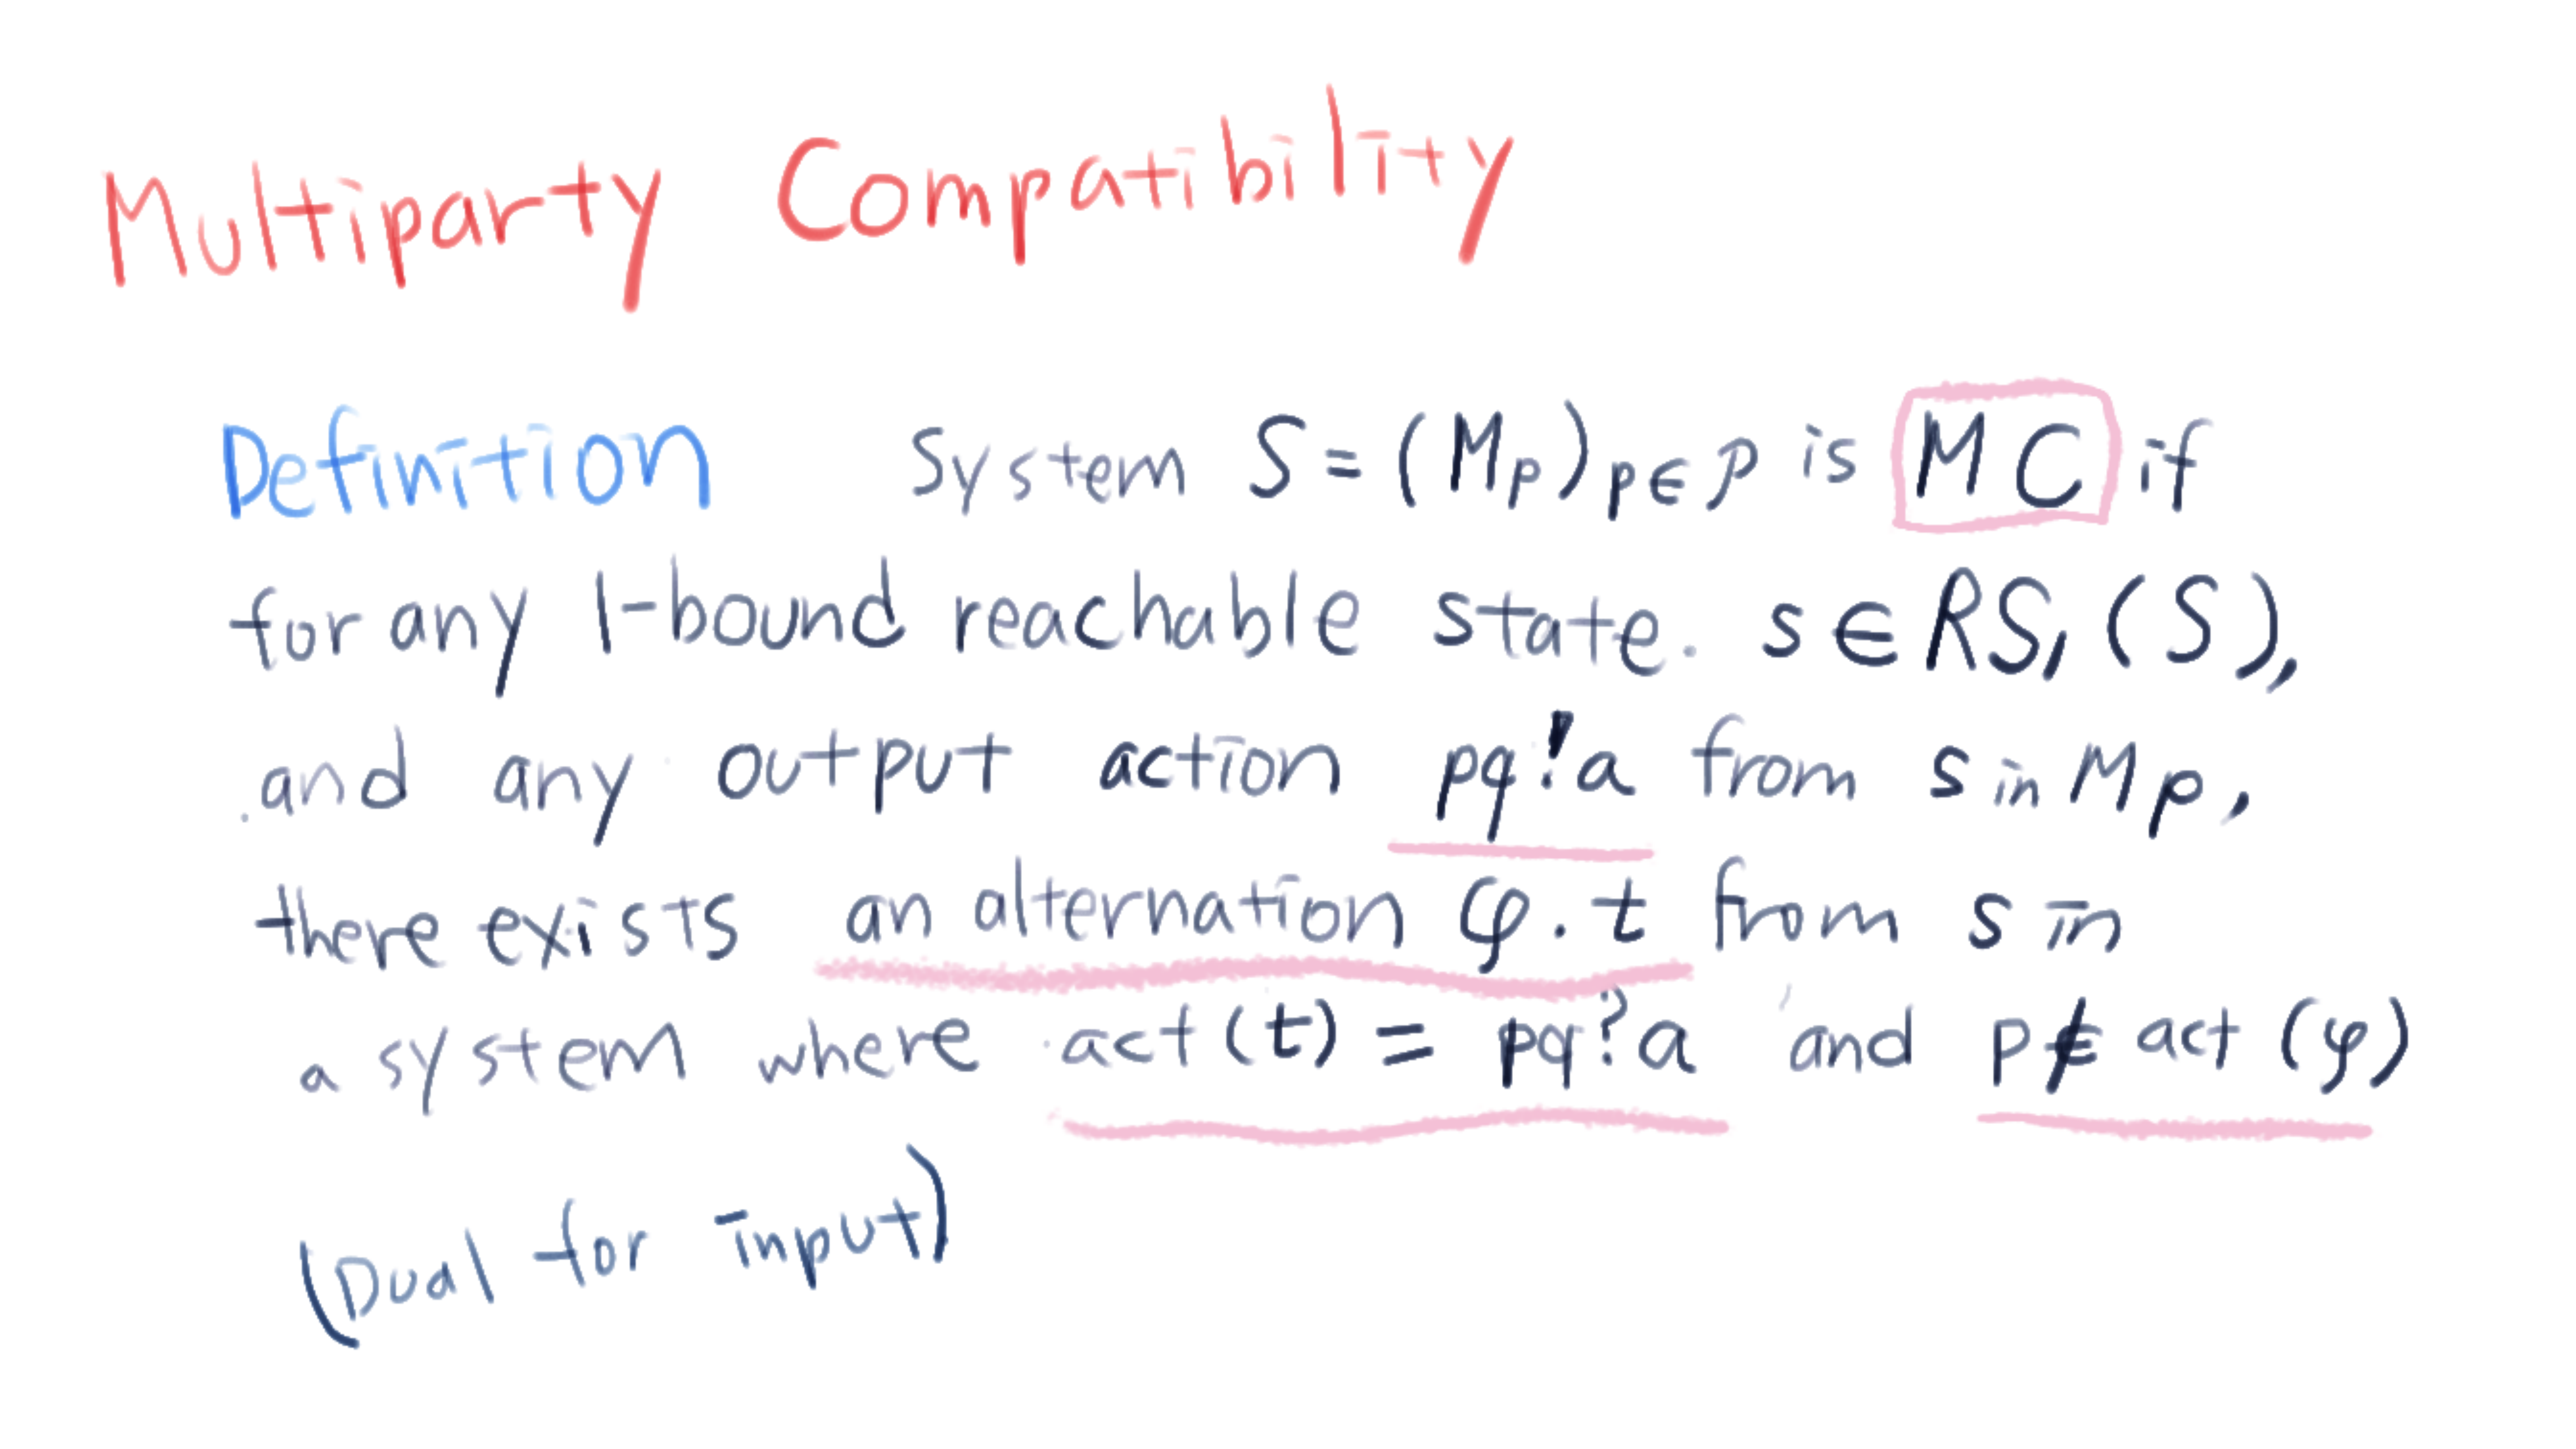 Multiparty Compatibility
Definition System S = (Mp)p∈𝒫 is MC if
for any 1-bound reachable state. s ∈ RS₁(S),
and any output action pq!a from s in Mp,
there exists an alternation φ.t from s in
a system where act(t) = pq?a and p∉ act(φ)
(Dual for input)